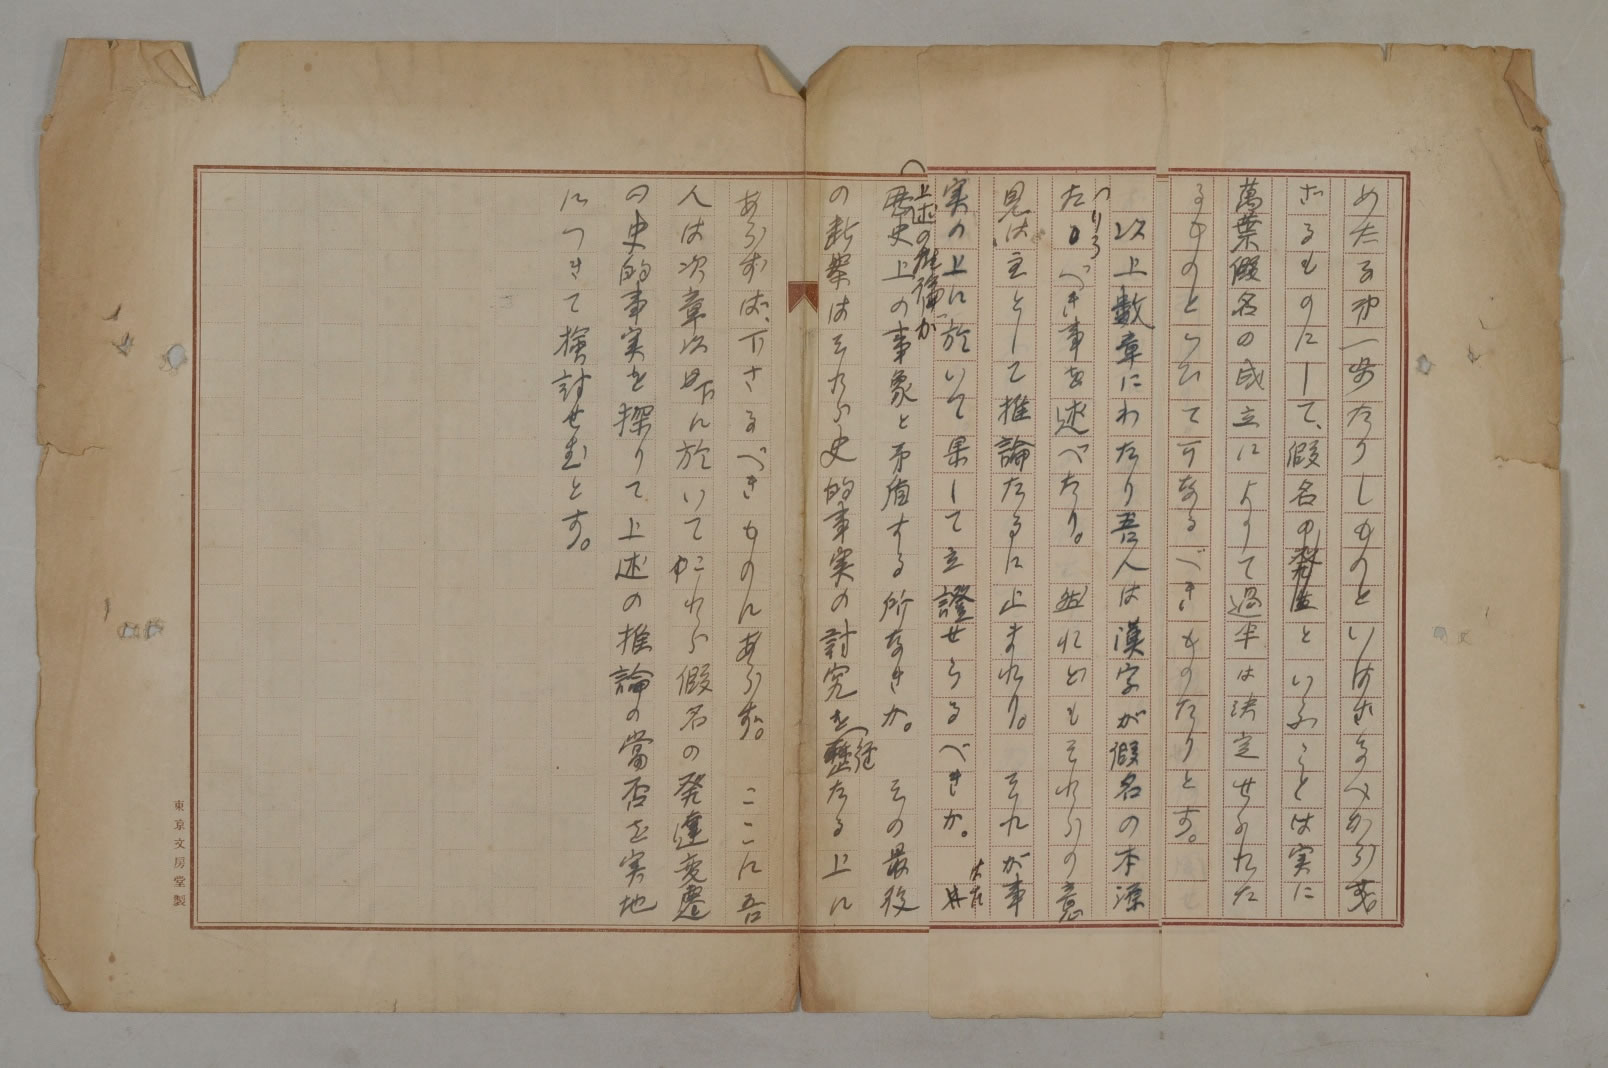 めたる第一歩たりしものといはざるべからず
ざるものにして、假名の発生といふことは実に
萬葉假名の成立によりて過半は決定せられた
るものといひて可なるべきものたりとす。
以上數章にわたり吾人は漢字が假名の本源
たりうべき事を述べたり。然れどもそれらの意
見は主として推論たるに止まれり。それが事
実の上に於いて果して立證せらるべきか。はた
上述の推論が
歴史上の事象と矛盾する所なきか。その最後
の断案はそれら史的事実の討究を経たる上に
あらずば、下さるべきものにあらず。ここに吾
人は次章以下に於いてこれら假名の発達変遷
の史的事実を探りて上述の推論の當否を実地
につきて検討せむとす。
東京文房堂製